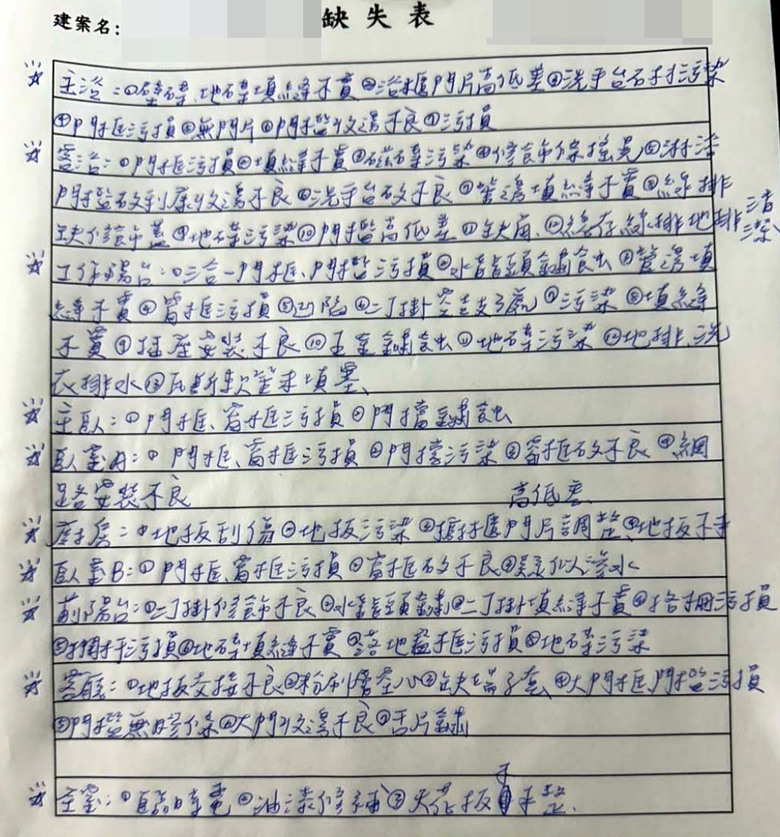 缺失表
建案名：
主浴：①壁磚、地磚填縫不實②浴櫃門片高低差③洗手台石材污染
④門框污損⑤無門片⑥門檻收邊不良⑦污損
客浴：①門框污損②填縫不實③磁磚污染④修飾條搖晃⑤淋浴
門檻矽利康收邊不良⑥洗手台矽不良⑦管邊填縫不實⑧線排
缺修飾蓋⑨地磚污染⑩門檻高低差⑪缺角、⑫ 線排地排清
潔
工作陽台：①三合一門框、門檻污損②水管頭鏽蝕③管邊填
縫不實④窗框污損⑤凹陷⑥二丁掛 ⑦污染⑧填縫
不實⑨插座安裝不良⑩ 鏽蝕⑪地磚污染⑫地排、洗
衣排水⑬瓦斯軟管未填塞
主臥：①門框、窗框污損②門擋鏽蝕
臥室A：①門框、窗框污損②門擋污染③窗框矽不良④網
路安裝不良
高低差
廚房：①地板刮傷②地板污染③櫥櫃門片調整④地板不平
臥室B：①門框、窗框污損②窗框矽不良③疑似滲水
前陽台：①二丁掛修飾不良②水管頭鏽③二丁掛填縫不實④格柵污損
⑤欄杆污損⑥地磚填縫不實⑦落地窗框污損⑧地磚污染
客廳：①地板交接不良②粉刷牆空心③缺端子蓋④大門框、門檻污損
⑤門檻無膠條⑥大門收邊不良⑦舌片鏽
全室：① ②油漆修補③天花板不平整